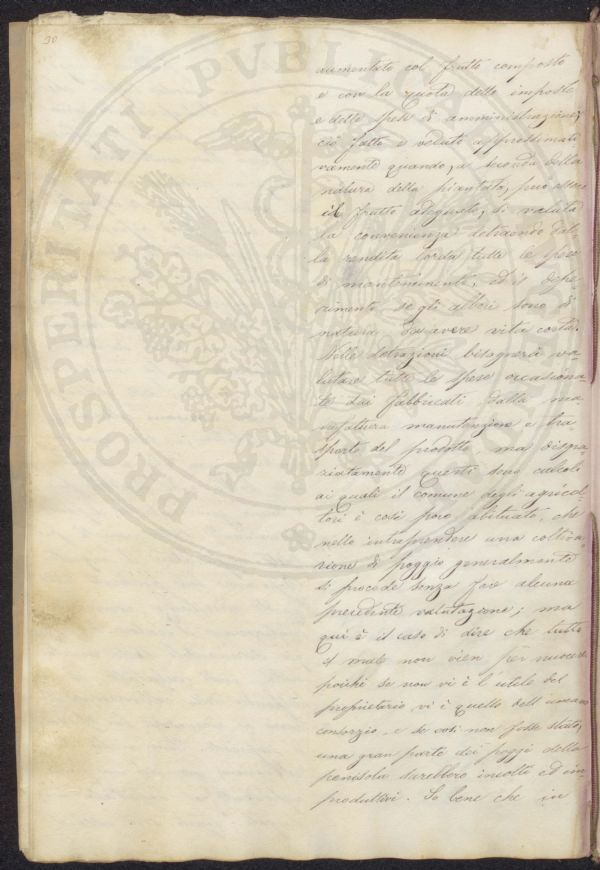 30
PROSPERITATI PVBLICAE
aumentato col frutto composto
e con la quota delle imposte
e delle spese di amministrazione;
ciò fatto e veduto approssimati
vamente quando, a seconda della
natura della piantata, può essere
il frutto adeguato, si valuta
la convenienza detraendo dal
la rendita lorda tutte le spese
di mantenimento, ed il depe
rimento se gli alberi sono di
natura da avere vita corta.
Nelle detrazioni bisognerà va
lutare tutte le spese occasiona
te dai fabbricati dalla ma
nifattura manutenzione e tra
sporto del prodotto, ma disgra
ziatamente questi sono calcoli
ai quali il comune degli agricol
tori è così poco abituato, che
nello intraprendere una coltiva
zione di poggio generalmente
si procede senza fare alcuna
precedente valutazione; ma
qui è il caso di dire che tutto
il male non vien per nuocere
poichè se non vi è l'utile del
proprietario vi è quello dell'umano
consorzio, e se così non fosse stato,
una gran parte dei poggi della
penisola sarebbero incolti ed im
produttivi. So bene che in